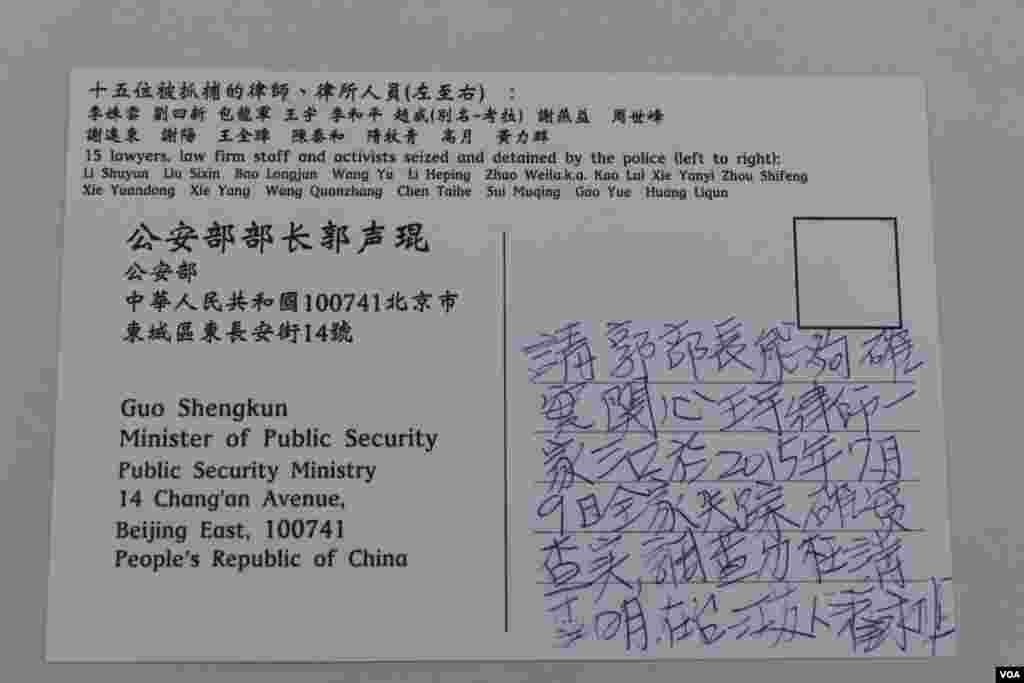 十五位被抓捕的律師、律所人員(左至右) :
李姝雲 劉四新 包龍軍 王宇 李和平 趙威(別名-考拉) 謝燕益 周世峰
謝遠東 謝陽 王全璋 陳泰和 隋牧青 高月 黃力群
15 lawyers, law firm staff and activists seized and detained by the police (left to right):
Li Shuyun Liu Sixin Bao Longjun Wang Yu Li Heping Zhao Weila.k.a. Kao Lai Xie Yanyi Zhou Shifeng
Xie Yuandong Xie Yang Wang Quanzhang Chen Taihe Sui Muqing Gao Yue Huang Liqun
公安部部长郭声琨
公安部
中華人民共和國100741北京市
東城區東長安街14號
Guo Shengkun
Minister of Public Security
Public Security Ministry
14 Chang'an Avenue,
Beijing East, 100741
People's Republic of China
請郭部長能夠確
實關心王宇律师一
家三口於2015年7月
9日全家失踪確實
查实,調查
明
VOA